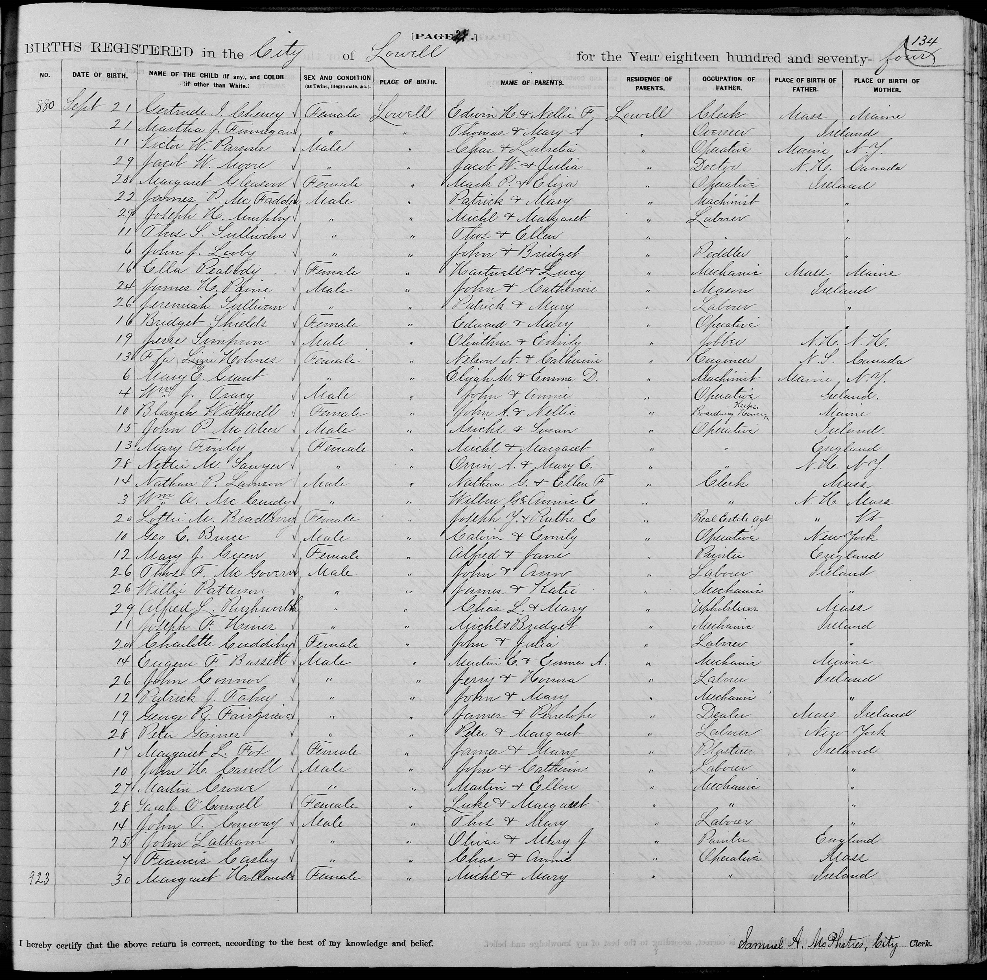 [PAGE .]
134
BIRTHS REGISTERED in the City of Lowell for the Year eighteen hundred and seventy- four
NO. DATE OF BIRTH. NAME OF THE CHILD (if any), and COLOR (if other than White.) SEX AND CONDITION (as Twins, Illegitimate, &c.) PLACE OF BIRTH. NAME OF PARENTS. RESIDENCE OF PARENTS. OCCUPATION OF FATHER. PLACE OF BIRTH OF FATHER. PLACE OF BIRTH OF MOTHER.
880 Sept 21 Gertrude I. Female Lowell Edwin H. & Nellie F. Lowell Clerk Mass Maine
21 Martha J. Finnegan " " Thomas & Mary A " Overseer Ireland
11 Victor W. Male " Chas & " Operative Maine N.Y.
29 Jacob W. Moore " Jacob W & Julia " Doctor N.H. Canada
Margaret Female " Mark P. & Eliza " Operative Ireland
22 James P. Male " Patrick & Mary " Machinist "
Joseph H. Murphy " " Michl & Margaret " Laborer "
11 Sullivan " " & Ellen " "
6 John J. " " John & Bridget " Peddler "
Ella Peabody Female " Hartwell & Lucy " Mechanic Mass Maine
24 James H. Male " John & Catherine " Mason Ireland
26 Jeremiah Sullivan " " Patrick & Mary " Laborer "
16 Bridget Shields Female " Edward & Mary " Operative "
19 Simpson Male " & Emily " Jobber N.H. N.H.
13 Holmes Female " Nelson N. & Catherine " N.S. Canada
6 Mary E. Grant " " Elijah M. & Emma D. " Machinist Maine N.Y.
4 Wm J. Tracy Male " John & Annie " Operative Ireland
10 Blanch Witherell Female " John A & Nellie " Boarding House Keeper Maine
15 John P. Male " Michl & Susan " Operative Ireland
13 Mary Female " Michl & Margaret " " England
28 Nettie M. Sawyer " " Orrin A. & Mary C. " " N.H. N.Y.
14 Nathan P. Male " Nathan G. & Ellen F " Clerk Mass
3 Wm A. " " & Annie E " " N.H. Mass
Lottie M. Female " Joseph & Ruth E " Real Estate Agt " Vt
10 Geo E. Bruce Male " Calvin & Emily " Operative New York
12 Mary J. Green Female " Alfred & Jane " Painter England
26 F. McGovern Male " John & Ann " Laborer Ireland
26 Willie " " James & Katie " Mechanic "
29 Alfred L. " " Chas L. & Mary " Upholsterer Mass
11 Joseph F. " " Michl & Bridget " Mechanic Ireland
Charlotte Female " John & Julia " Laborer "
14 Eugene F. Bassett Male " Martin C. & Emma A. " Mechanic Maine
26 John Connor " " Jerry & " Laborer Ireland
12 Patrick J. Fahey " " John & Mary " Mechanic "
19 George " " James & Penelope " Dealer Mass Ireland
28 Peter " " Peter & Margaret " Laborer New York
17 Margaret L. Fox Female " James & Mary " Plasterer Ireland
10 John H. Carroll Male " John & Catherine " Laborer "
27 Martin Crowe " " Martin & Ellen " Mechanic "
28 Sarah O'Connell Female " Luke & Margaret " " "
14 John T. Conway Male " & Mary " Laborer "
25 John Latham " " Oliver & Mary J " Painter England
7 Francis " " Chas & Annie " Operative Mass
923 30 Margaret Holland Female " Michl & Mary " " Ireland
I hereby certify that the above return is correct, according to the best of my knowledge and belief. Samuel A. McPhetres, City Clerk.